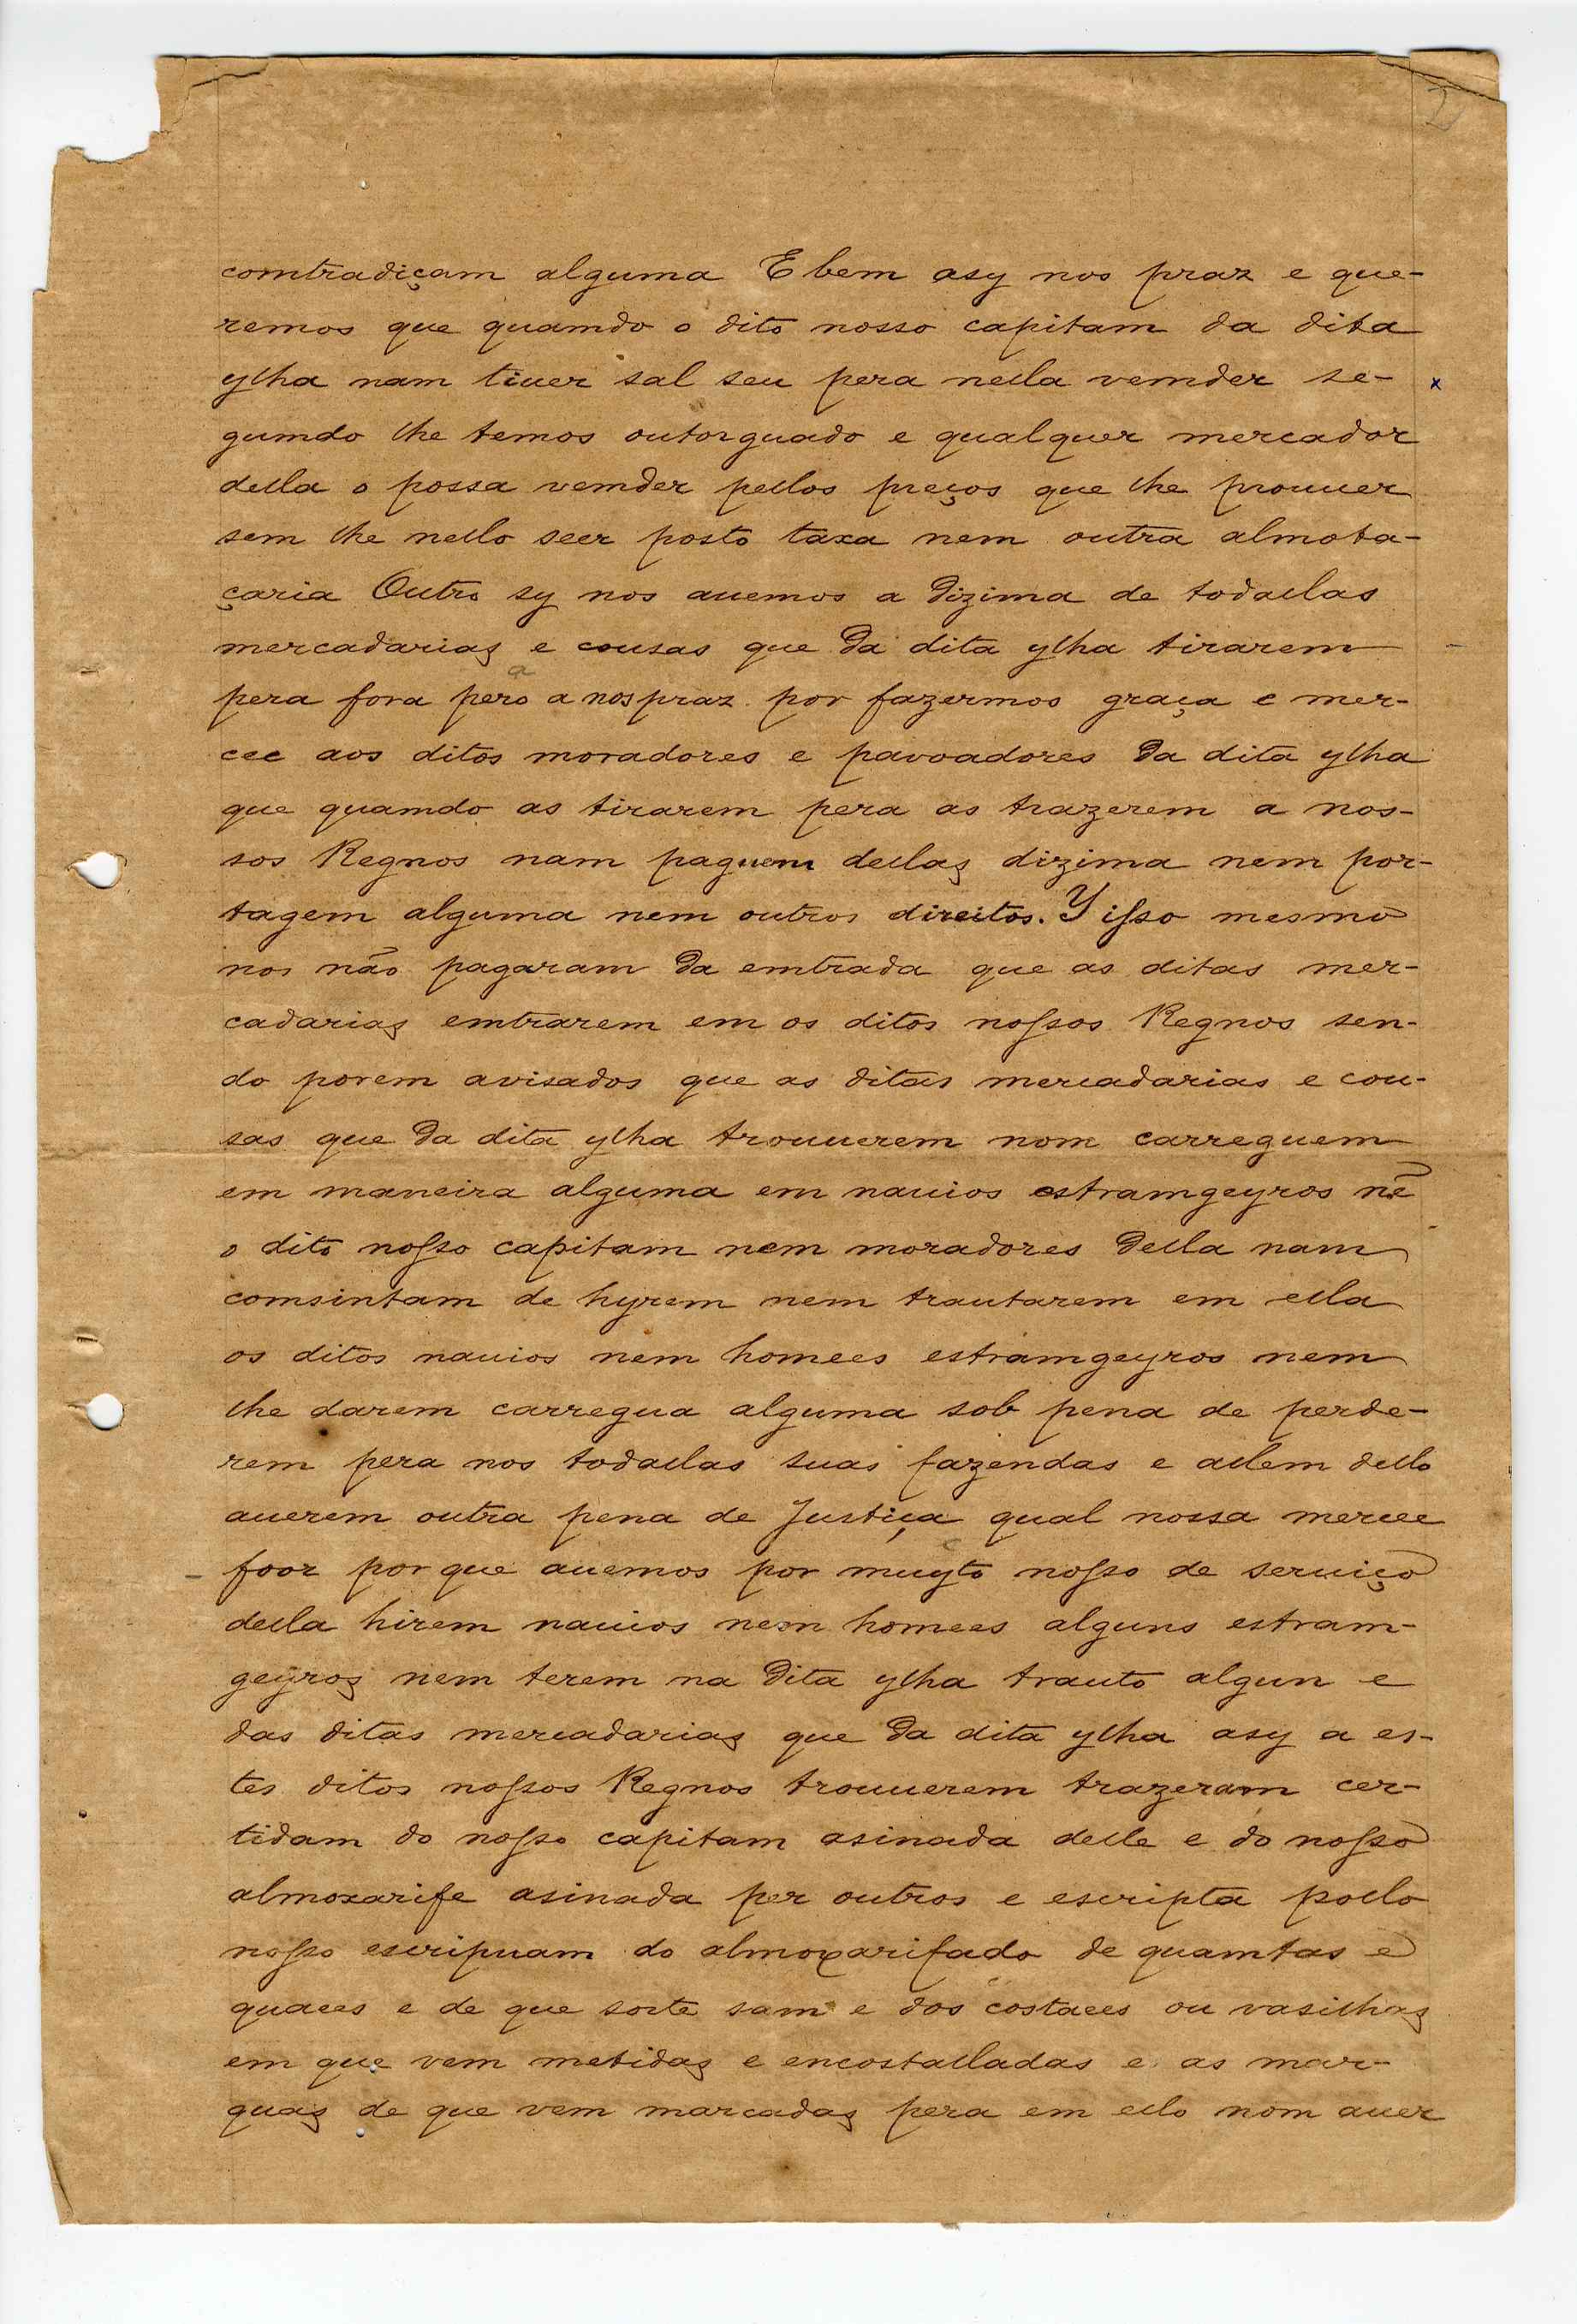 2
comtradiçam alguma E bem asy nos praz e que-
remos que quamdo o dito nosso capitam da dita
ylha nam tiuer sal seu pera nella vemder se- x
gumdo lhe temos outorguado e qualquer mercador
della o possa vemder pellos preços que lhe prouuer
sem lhe nello seer posto taxa nem outra almota-
çaria Outro sy nos auemos a dizima de todallas
mercadarias e cousas que da dita ylha tirarem
a
pera fora pero a nos praz por fazermos graça e mer-
cee aos ditos moradores e pavoadores da dita ylha
que quamdo as tirarem pera as trazerem a nos-
sos Regnos nam paguem dellas dizima nem por-
tagem alguma nem outros direitos. Y isso mesmo
nos não pagaram da emtrada que as ditas mer-
cadarias emtrarem em os ditos nossos Regnos sen-
do porem avisados que as ditas mercadarias e cou-
sas que da dita ylha trouuerem nom carreguem
em maneira alguma em nauios estramgeyros nẽ
o dito nosso capitam nem moradores della nam
comsintam de hyrem nem trautarem em ella
os ditos nauios nem homees estramgeyros nem
lhe darem carregua alguma sob pena de perde-
rem pera nos todallas suas fazendas e allem dello
auerem outra pena de Justiça qual nossa mercee
foor porque auemos por muyto nosso de seruiço
della hirem nauios nem homees alguns estram-
geyros nem terem na dita ylha trauto algun e
das ditas mercadarias que da dita ylha asy a es-
tes ditos nossos Regnos trouuerem trazeram cer-
tidam do nosso capitam asinada delle e do nosso
almoxarife asinada per outros e escripta pollo
nosso escripuam do almoxarifado de quamtas e
quaees e de que sorte sam e dos costaees ou vasilhas
em que vem metidas e encostalladas e as mar-
quas de que vem marcadas pera em ello nom auer